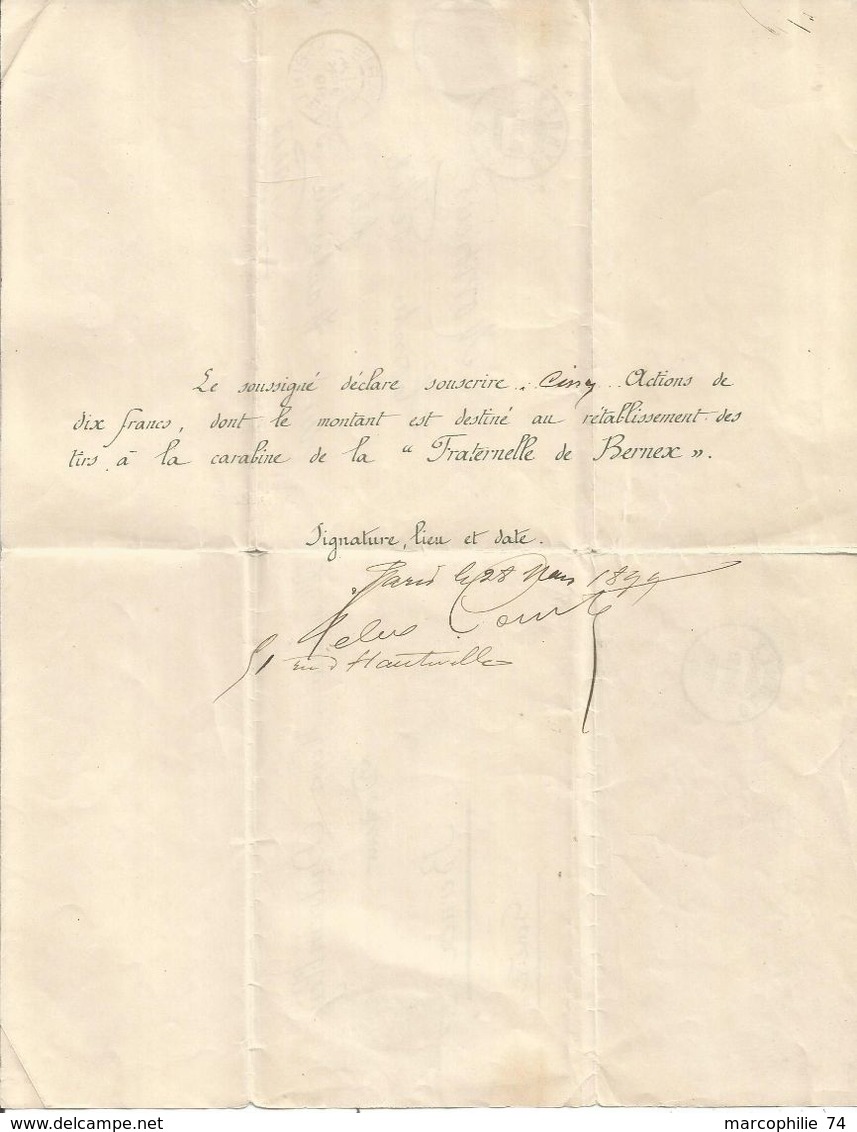 Le soussigné déclare souscrire . Cinq . Actions de
dix francs, dont le montant est destiné au rétablissement des
tirs à la carabine de la “ Fraternelle de Bernex ”.
Signature, lieu et date.
Paris le 28 Mars 1899
51 rue d'Hauteville
marcophilie 74